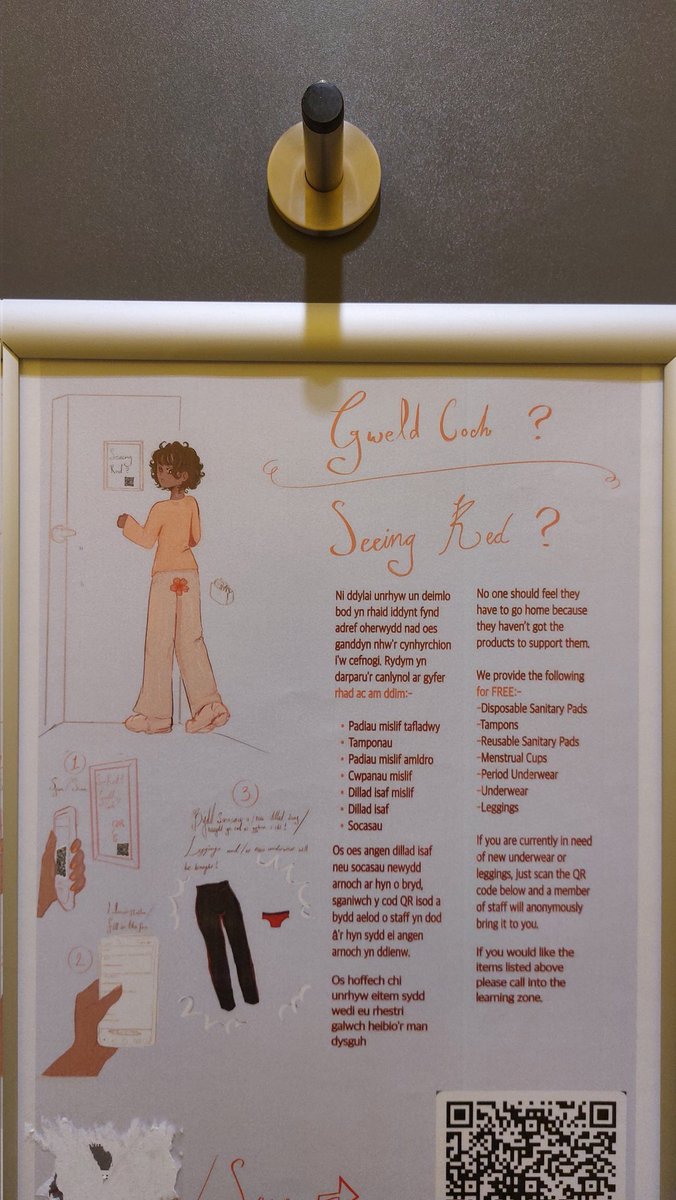 Gweld Coch ?
Seeing Red ?
Seeing
Red?
Ni ddylai unrhyw un deimlo
bod yn rhaid iddynt fynd
adref oherwydd nad oes
ganddyn nhw'r cynhyrchion
i'w cefnogi. Rydym yn
darparu'r canlynol ar gyfer
rhad ac am ddim:-
• Padiau mislif tafladwy
• Tamponau
• Padiau mislif amldro
• Cwpanau mislif
• Dillad isaf mislif
• Dillad isaf
• Socasau
Os oes angen dillad isaf
neu socasau newydd
arnoch ar hyn o bryd,
sganiwch y cod QR isod a
bydd aelod o staff yn dod
â'r hyn sydd ei angen
arnoch yn ddienw.
Os hoffech chi
unrhyw eitem sydd
wedi eu rhestri
galwch heibio'r man
dysguh
No one should feel they
have to go home because
they haven't got the
products to support them.
We provide the following
for FREE:-
-Disposable Sanitary Pads
-Tampons
-Reusable Sanitary Pads
-Menstrual Cups
-Period Underwear
-Underwear
-Leggings
If you are currently in need
of new underwear or
leggings, just scan the QR
code below and a member
of staff will anonymously
bring it to you.
If you would like the
items listed above
please call into the
learning zone.
1
2
3
Leggings and/or underwear will
be brought!